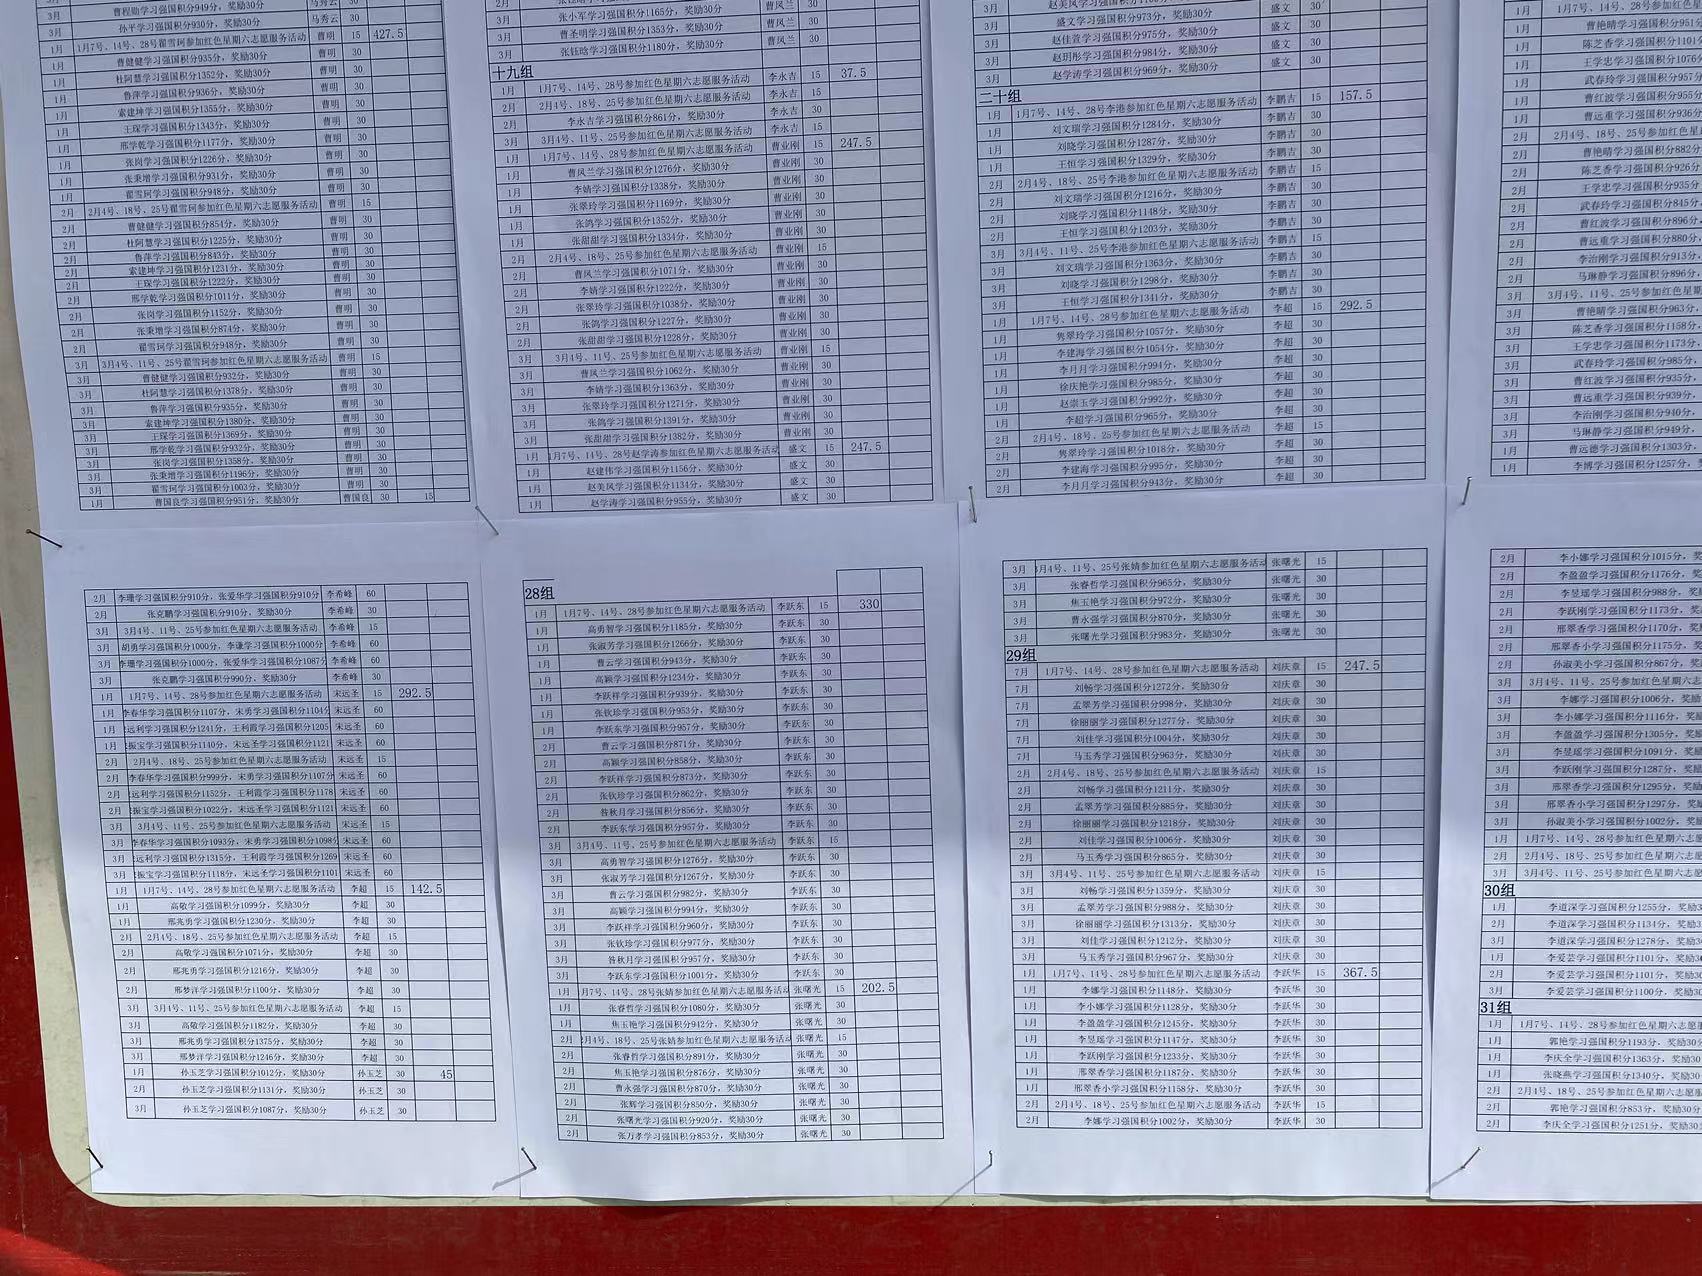 3月 曹程勋学习强国积分949分，奖励30分 马秀云 30
3月 孙平学习强国积分930分，奖励30分 马秀云 30
1月 1月7号、14号、28号翟雪珂参加红色星期六志愿服务活动 曹明 15 427.5
1月 曹健健学习强国积分935分，奖励30分 曹明 30
1月 杜阿慧学习强国积分1352分，奖励30分 曹明 30
1月 鲁萍学习强国积分936分，奖励30分 曹明 30
1月 索建坤学习强国积分1355分，奖励30分 曹明 30
1月 王琛学习强国积分1343分，奖励30分 曹明 30
1月 邢学乾学习强国积分1177分，奖励30分 曹明 30
1月 张岗学习强国积分1226分，奖励30分 曹明 30
1月 张秉增学习强国积分931分，奖励30分 曹明 30
1月 翟雪珂学习强国积分948分，奖励30分 曹明 30
2月 2月4号、18号、25号翟雪珂参加红色星期六志愿服务活动 曹明 15
2月 曹健健学习强国积分854分，奖励30分 曹明 30
2月 杜阿慧学习强国积分1225分，奖励30分 曹明 30
2月 鲁萍学习强国积分843分，奖励30分 曹明 30
2月 索建坤学习强国积分1231分，奖励30分 曹明 30
2月 王琛学习强国积分1222分，奖励30分 曹明 30
2月 邢学乾学习强国积分1011分，奖励30分 曹明 30
2月 张岗学习强国积分1152分，奖励30分 曹明 30
2月 张秉增学习强国积分874分，奖励30分 曹明 30
2月 翟雪珂学习强国积分948分，奖励30分 曹明 30
3月 3月4号、11号、25号翟雪珂参加红色星期六志愿服务活动 曹明 15
3月 曹健健学习强国积分932分，奖励30分 曹明 30
3月 杜阿慧学习强国积分1378分，奖励30分 曹明 30
3月 鲁萍学习强国积分935分，奖励30分 曹明 30
3月 索建坤学习强国积分1380分，奖励30分 曹明 30
3月 王琛学习强国积分1369分，奖励30分 曹明 30
3月 邢学乾学习强国积分932分，奖励30分 曹明 30
3月 张岗学习强国积分1358分，奖励30分 曹明 30
3月 张秉增学习强国积分1196分，奖励30分 曹明 30
3月 翟雪珂学习强国积分1003分，奖励30分 曹明 30
1月 曹国良学习强国积分951分，奖励30分 曹国良 30 15
3月 张小军学习强国积分1165分，奖励30分 曹凤兰 30
3月 曹圣明学习强国积分1353分，奖励30分 曹凤兰 30
3月 张钰晗学习强国积分1180分，奖励30分 曹凤兰 30
十九组
1月 1月7号、14号、28号参加红色星期六志愿服务活动 李永吉 15 37.5
2月 2月4号、18号、25号参加红色星期六志愿服务活动 李永吉 15
2月 李永吉学习强国积分861分，奖励30分 李永吉 30
3月 3月4号、11号、25号参加红色星期六志愿服务活动 李永吉 15
1月 1月7号、14号、28号参加红色星期六志愿服务活动 曹业刚 15 247.5
1月 曹凤兰学习强国积分1276分，奖励30分 曹业刚 30
1月 李婧学习强国积分1338分，奖励30分 曹业刚 30
1月 张翠玲学习强国积分1169分，奖励30分 曹业刚 30
1月 张鸽学习强国积分1352分，奖励30分 曹业刚 30
1月 张甜甜学习强国积分1334分，奖励30分 曹业刚 30
2月 2月4号、18号、25号参加红色星期六志愿服务活动 曹业刚 15
2月 曹凤兰学习强国积分1071分，奖励30分 曹业刚 30
2月 李婧学习强国积分1222分，奖励30分 曹业刚 30
2月 张翠玲学习强国积分1038分，奖励30分 曹业刚 30
2月 张鸽学习强国积分1227分，奖励30分 曹业刚 30
2月 张甜甜学习强国积分1228分，奖励30分 曹业刚 30
3月 3月4号、11号、25号参加红色星期六志愿服务活动 曹业刚 15
3月 曹凤兰学习强国积分1062分，奖励30分 曹业刚 30
3月 李婧学习强国积分1363分，奖励30分 曹业刚 30
3月 张翠玲学习强国积分1271分，奖励30分 曹业刚 30
3月 张鸽学习强国积分1391分，奖励30分 曹业刚 30
3月 张甜甜学习强国积分1382分，奖励30分 曹业刚 30
1月 1月7号、14号、28号赵学涛参加红色星期六志愿服务活动 盛文 15 247.5
1月 赵建伟学习强国积分1156分，奖励30分 盛文 30
1月 赵美凤学习强国积分1134分，奖励30分 盛文 30
1月 赵学涛学习强国积分955分，奖励30分 盛文 30
3月 盛文 30
3月 盛文学习强国积分973分，奖励30分 盛文 30
3月 赵佳萱学习强国积分975分，奖励30分 盛文 30
3月 赵玥彤学习强国积分984分，奖励30分 盛文 30
3月 赵学涛学习强国积分969分，奖励30分 盛文 30
二十组
1月 1月7号、14号、28号李港参加红色星期六志愿服务活动 李鹏吉 15 157.5
1月 刘文瑞学习强国积分1284分，奖励30分 李鹏吉 30
1月 刘晓学习强国积分1287分，奖励30分 李鹏吉 30
1月 王恒学习强国积分1329分，奖励30分 李鹏吉 30
2月 2月4号、18号、25号李港参加红色星期六志愿服务活动 李鹏吉 15
2月 刘文瑞学习强国积分1216分，奖励30分 李鹏吉 30
2月 刘晓学习强国积分1148分，奖励30分 李鹏吉 30
2月 王恒学习强国积分1203分，奖励30分 李鹏吉 30
3月 3月4号、11号、25号李港参加红色星期六志愿服务活动 李鹏吉 15
3月 刘文瑞学习强国积分1363分，奖励30分 李鹏吉 30
3月 刘晓学习强国积分1298分，奖励30分 李鹏吉 30
3月 王恒学习强国积分1341分，奖励30分 李鹏吉 30
1月 1月7号、14号、28号参加红色星期六志愿服务活动 李超 15 292.5
1月 隽翠玲学习强国积分1057分，奖励30分 李超 30
1月 李建海学习强国积分1054分，奖励30分 李超 30
1月 李月月学习强国积分994分，奖励30分 李超 30
1月 徐庆艳学习强国积分985分，奖励30分 李超 30
1月 赵崇玉学习强国积分992分，奖励30分 李超 30
1月 李超学习强国积分965分，奖励30分 李超 30
2月 2月4号、18号、25号参加红色星期六志愿服务活动 李超 15
2月 隽翠玲学习强国积分1018分，奖励30分 李超 30
2月 李建海学习强国积分995分，奖励30分 李超 30
2月 李月月学习强国积分943分，奖励30分 李超 30
1月 1月7号、14号、28号参加红色
1月 曹艳晴学习强国积分951分
1月 陈芝香学习强国积分1101
1月 王学忠学习强国积分1076
1月 武春玲学习强国积分957分
1月 曹红波学习强国积分955分
1月 曹远重学习强国积分936分
2月 2月4号、18号、25号参加红色
2月 曹艳晴学习强国积分882分
2月 陈芝香学习强国积分926分
2月 王学忠学习强国积分935分
2月 武春玲学习强国积分845分
2月 曹红波学习强国积分896分，
2月 曹远重学习强国积分880分，
2月 李治刚学习强国积分913分，
2月 马琳静学习强国积分896分，
3月 3月4号、11号、25号参加红色星
3月 曹艳晴学习强国积分963分，
3月 陈芝香学习强国积分1158分，
3月 王学忠学习强国积分1173分，
3月 武春玲学习强国积分985分，
3月 曹红波学习强国积分935分，
3月 曹远重学习强国积分939分，
3月 李治刚学习强国积分940分，
3月 马琳静学习强国积分949分，
1月 曹远德学习强国积分1303分，
1月 李博学习强国积分1257分，奖
2月 李珊学习强国积分910分，张爱华学习强国积分910分 李希峰 60
2月 张克鹏学习强国积分910分，奖励30分 李希峰 30
3月 3月4号、11号、25号参加红色星期六志愿服务活动 李希峰 15
3月 胡勇学习强国积分1000分，李谦学习强国积分1000分 李希峰 60
3月 李珊学习强国积分1000分，张爱华学习强国积分1087分 李希峰 60
3月 张克鹏学习强国积分990分，奖励30分 李希峰 30
1月 1月7号、14号、28号参加红色星期六志愿服务活动 宋远圣 15 292.5
1月 李春华学习强国积分1107分，宋勇学习强国积分1104分 宋远圣 60
1月 远利学习强国积分1241分，王利霞学习强国积分1205 宋远圣 60
1月 振宝学习强国积分1140分，宋远圣学习强国积分1121 宋远圣 60
2月 2月4号、18号、25号参加红色星期六志愿服务活动 宋远圣 15
2月 李春华学习强国积分999分，宋勇学习强国积分1107分 宋远圣 60
2月 远利学习强国积分1152分，王利霞学习强国积分1178 宋远圣 60
2月 振宝学习强国积分1022分，宋远圣学习强国积分1121 宋远圣 60
3月 3月4号、11号、25号参加红色星期六志愿服务活动 宋远圣 15
3月 李春华学习强国积分1093分，宋勇学习强国积分1098分 宋远圣 60
3月 远利学习强国积分1315分，王利霞学习强国积分1269 宋远圣 60
3月 振宝学习强国积分1118分，宋远圣学习强国积分1101 宋远圣 60
1月 1月7号、14号、28号参加红色星期六志愿服务活动 李超 15 142.5
1月 高敬学习强国积分1099分，奖励30分 李超 30
1月 邢兆勇学习强国积分1230分，奖励30分 李超 30
2月 2月4号、18号、25号参加红色星期六志愿服务活动 李超 15
2月 高敬学习强国积分1071分，奖励30分 李超 30
2月 邢兆勇学习强国积分1216分，奖励30分 李超 30
2月 邢梦洋学习强国积分1100分，奖励30分 李超 30
3月 3月4号、11号、25号参加红色星期六志愿服务活动 李超 15
3月 高敬学习强国积分1182分，奖励30分 李超 30
3月 邢兆勇学习强国积分1375分，奖励30分 李超 30
3月 邢梦洋学习强国积分1246分，奖励30分 李超 30
1月 孙玉芝学习强国积分1012分，奖励30分 孙玉芝 30 45
2月 孙玉芝学习强国积分1131分，奖励30分 孙玉芝 30
3月 孙玉芝学习强国积分1087分，奖励30分 孙玉芝 30
28组
1月 1月7号、14号、28号参加红色星期六志愿服务活动 李跃东 15 330
1月 高勇智学习强国积分1185分，奖励30分 李跃东 30
1月 张淑芳学习强国积分1266分，奖励30分 李跃东 30
1月 曹云学习强国积分943分，奖励30分 李跃东 30
1月 高颖学习强国积分1234分，奖励30分 李跃东 30
1月 李跃祥学习强国积分939分，奖励30分 李跃东 30
1月 张钦珍学习强国积分953分，奖励30分 李跃东 30
1月 李跃东学习强国积分957分，奖励30分 李跃东 30
2月 曹云学习强国积分871分，奖励30分 李跃东 30
2月 高颖学习强国积分858分，奖励30分 李跃东 30
2月 李跃祥学习强国积分873分，奖励30分 李跃东 30
2月 张钦珍学习强国积分862分，奖励30分 李跃东 30
2月 昝秋月学习强国积分856分，奖励30分 李跃东 30
2月 李跃东学习强国积分957分，奖励30分 李跃东 30
3月 3月4号、11号、25号参加红色星期六志愿服务活动 李跃东 15
3月 高勇智学习强国积分1276分，奖励30分 李跃东 30
3月 张淑芳学习强国积分1267分，奖励30分 李跃东 30
3月 曹云学习强国积分982分，奖励30分 李跃东 30
3月 高颖学习强国积分994分，奖励30分 李跃东 30
3月 李跃祥学习强国积分960分，奖励30分 李跃东 30
3月 张钦珍学习强国积分977分，奖励30分 李跃东 30
3月 昝秋月学习强国积分957分，奖励30分 李跃东 30
3月 李跃东学习强国积分1001分，奖励30分 李跃东 30
1月 月7号、14号、28号张婧参加红色星期六志愿服务活 张曙光 15 202.5
1月 张睿哲学习强国积分1080分，奖励30分 张曙光 30
1月 焦玉艳学习强国积分942分，奖励30分 张曙光 30
2月 2月4号、18号、25号张婧参加红色星期六志愿服务活 张曙光 15
2月 张睿哲学习强国积分891分，奖励30分 张曙光 30
2月 焦玉艳学习强国积分876分，奖励30分 张曙光 30
2月 曹永强学习强国积分870分，奖励30分 张曙光 30
2月 张辉学习强国积分850分，奖励30分 张曙光 30
2月 张曙光学习强国积分920分，奖励30分 张曙光 30
2月 张万孝学习强国积分853分，奖励30分 张曙光 30
3月 3月4号、11号、25号张婧参加红色星期六志愿服务活动 张曙光 15
3月 张睿哲学习强国积分965分，奖励30分 张曙光 30
3月 焦玉艳学习强国积分972分，奖励30分 张曙光 30
3月 曹永强学习强国积分870分，奖励30分 张曙光 30
3月 张曙光学习强国积分983分，奖励30分 张曙光 30
29组
7月 1月7号、14号、28号参加红色星期六志愿服务活动 刘庆章 15 247.5
7月 刘畅学习强国积分1272分，奖励30分 刘庆章 30
7月 孟翠芳学习强国积分998分，奖励30分 刘庆章 30
7月 徐丽丽学习强国积分1277分，奖励30分 刘庆章 30
7月 刘佳学习强国积分1004分，奖励30分 刘庆章 30
7月 马玉秀学习强国积分963分，奖励30分 刘庆章 30
2月 2月4号、18号、25号参加红色星期六志愿服务活动 刘庆章 15
2月 刘畅学习强国积分1211分，奖励30分 刘庆章 30
2月 孟翠芳学习强国积分885分，奖励30分 刘庆章 30
2月 徐丽丽学习强国积分1218分，奖励30分 刘庆章 30
2月 刘佳学习强国积分1006分，奖励30分 刘庆章 30
2月 马玉秀学习强国积分865分，奖励30分 刘庆章 30
3月 3月4号、11号、25号参加红色星期六志愿服务活动 刘庆章 15
3月 刘畅学习强国积分1359分，奖励30分 刘庆章 30
3月 孟翠芳学习强国积分988分，奖励30分 刘庆章 30
3月 徐丽丽学习强国积分1313分，奖励30分 刘庆章 30
3月 刘佳学习强国积分1212分，奖励30分 刘庆章 30
3月 马玉秀学习强国积分967分，奖励30分 刘庆章 30
1月 1月7号、14号、28号参加红色星期六志愿服务活动 李跃华 15 367.5
1月 李娜学习强国积分1148分，奖励30分 李跃华 30
1月 李小娜学习强国积分1128分，奖励30分 李跃华 30
1月 李盈盈学习强国积分1245分，奖励30分 李跃华 30
1月 李昱瑶学习强国积分1147分，奖励30分 李跃华 30
1月 李跃刚学习强国积分1233分，奖励30分 李跃华 30
1月 邢翠香学习强国积分1187分，奖励30分 李跃华 30
1月 邢翠香小学习强国积分1158分，奖励30分 李跃华 30
2月 2月4号、18号、25号参加红色星期六志愿服务活动 李跃华 15
2月 李娜学习强国积分1002分，奖励30分 李跃华 30
2月 李小娜学习强国积分1015分，奖
2月 李盈盈学习强国积分1176分，奖
2月 李昱瑶学习强国积分988分，奖
2月 李跃刚学习强国积分1173分，奖
2月 邢翠香学习强国积分1170分，奖
2月 邢翠香小学习强国积分1175分，奖
2月 孙淑美小学习强国积分867分，奖
3月 3月4号、11号、25号参加红色星
3月 李娜学习强国积分1006分，奖
3月 李小娜学习强国积分1116分，奖
3月 李盈盈学习强国积分1305分，奖
3月 李昱瑶学习强国积分1091分，奖
3月 李跃刚学习强国积分1287分，奖
3月 邢翠香学习强国积分1295分，奖
3月 邢翠香小学习强国积分1297分，奖
3月 孙淑美小学习强国积分1002分，奖
1月 1月7号、14号、28号参加红色星
2月 2月4号、18号、25号参加红色星
3月 3月4号、11号、25号参加红色星
30组
1月 李道深学习强国积分1255分，奖
2月 李道深学习强国积分1134分，奖
3月 李道深学习强国积分1278分，奖
1月 李爱芸学习强国积分1101分，奖
2月 李爱芸学习强国积分1101分，奖
3月 李爱芸学习强国积分1100分，奖
31组
1月 1月7号、14号、28号参加红色星
1月 郭艳学习强国积分1193分，奖励
1月 李庆全学习强国积分1363分，奖
1月 张晓燕学习强国积分1340分，奖
2月 2月4号、18号、25号参加红色星
2月 郭艳学习强国积分853分，奖励30
2月 李庆全学习强国积分1251分，奖